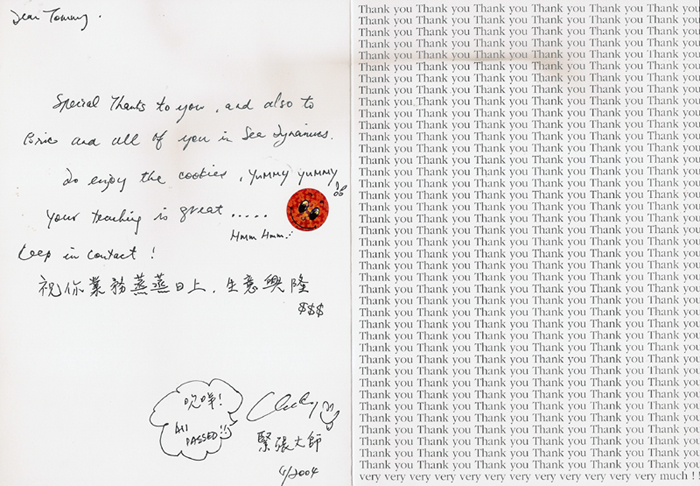 Dear Tommy.
Special Thanks to you, and also to
and all of you in Sea Dynamics.
Do enjoy the cookies, YUMMY YUMMY
your teaching is great .....
Hmm Hmm..
Keep in contact !
祝你業務蒸蒸日上，生意興隆
$$$
吹咩！
All
PASSED
緊張大師
/2004
Thank you Thank you Thank you Thank you Thank you Thank you
Thank you Thank you Thank you Thank you Thank you Thank you
Thank you Thank you Thank you Thank you Thank you Thank you
Thank you Thank you Thank you Thank you Thank you Thank you
Thank you Thank you Thank you Thank you Thank you Thank you
Thank you Thank you Thank you Thank you Thank you Thank you
Thank you Thank you Thank you Thank you Thank you Thank you
Thank you Thank you Thank you Thank you Thank you Thank you
Thank you Thank you Thank you Thank you Thank you Thank you
Thank you Thank you Thank you Thank you Thank you Thank you
Thank you Thank you Thank you Thank you Thank you Thank you
Thank you Thank you Thank you Thank you Thank you Thank you
Thank you Thank you Thank you Thank you Thank you Thank you
Thank you Thank you Thank you Thank you Thank you Thank you
Thank you Thank you Thank you Thank you Thank you Thank you
Thank you Thank you Thank you Thank you Thank you Thank you
Thank you Thank you Thank you Thank you Thank you Thank you
Thank you Thank you Thank you Thank you Thank you Thank you
Thank you Thank you Thank you Thank you Thank you Thank you
Thank you Thank you Thank you Thank you Thank you Thank you
Thank you Thank you Thank you Thank you Thank you Thank you
Thank you Thank you Thank you Thank you Thank you Thank you
Thank you Thank you Thank you Thank you Thank you Thank you
Thank you Thank you Thank you Thank you Thank you Thank you
Thank you Thank you Thank you Thank you Thank you Thank you
Thank you Thank you Thank you Thank you Thank you Thank you
Thank you Thank you Thank you Thank you Thank you Thank you
Thank you Thank you Thank you Thank you Thank you Thank you
Thank you Thank you Thank you Thank you Thank you Thank you
Thank you Thank you Thank you Thank you Thank you Thank you
Thank you Thank you Thank you Thank you Thank you Thank you
Thank you Thank you Thank you Thank you Thank you Thank you
Thank you Thank you Thank you Thank you Thank you Thank you
Thank you Thank you Thank you Thank you Thank you Thank you
Thank you Thank you Thank you Thank you Thank you Thank you
Thank you Thank you Thank you Thank you Thank you Thank you
Thank you Thank you Thank you Thank you Thank you Thank you
Thank you Thank you Thank you Thank you Thank you Thank you
Thank you Thank you Thank you Thank you Thank you Thank you
Thank you Thank you Thank you Thank you Thank you Thank you
very very very very very very very very very very very much ! !